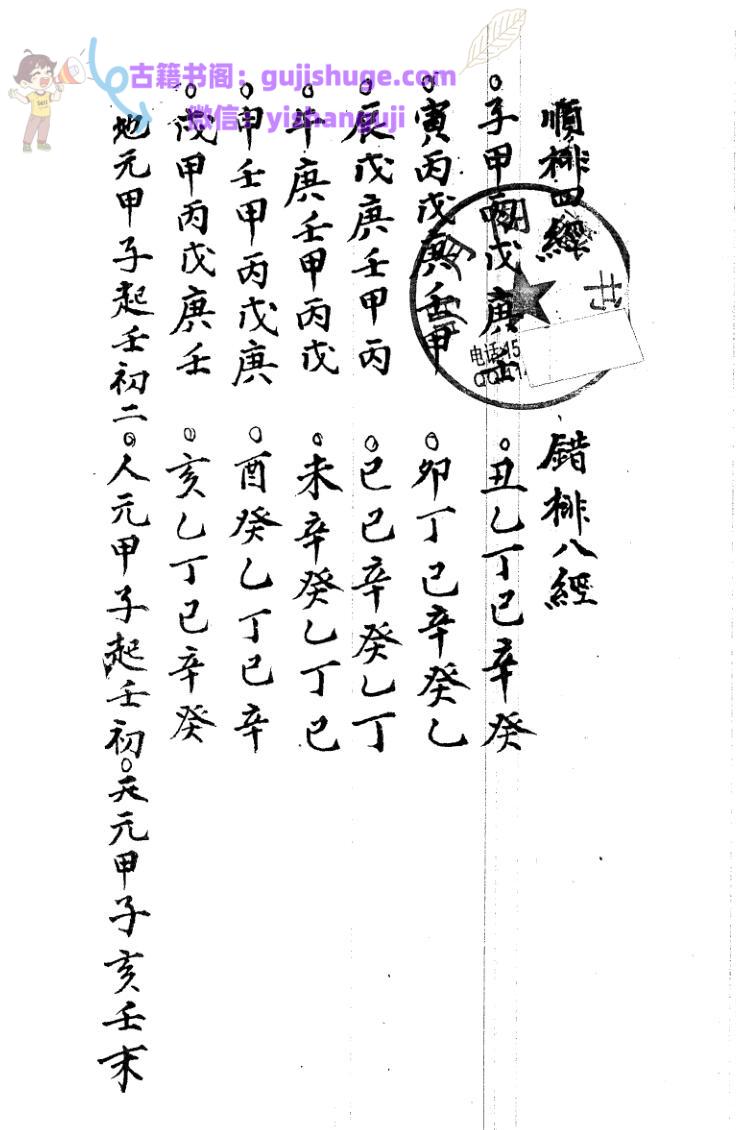 古籍书阁：gujishuge.com
微信：yishanguji
順排四經　錯排八經
○子甲丙戊庚壬　○丑乙丁己辛癸
○寅丙戊庚壬甲　○卯丁己辛癸乙
○辰戊庚壬甲丙　○巳己辛癸乙丁
○午庚壬甲丙戊　○未辛癸乙丁己
○申壬甲丙戊庚　○酉癸乙丁己辛
○戌甲丙戊庚壬　○亥乙丁己辛癸
地元甲子起壬初二○人元甲子起壬初○天元甲子亥壬末
书
电话